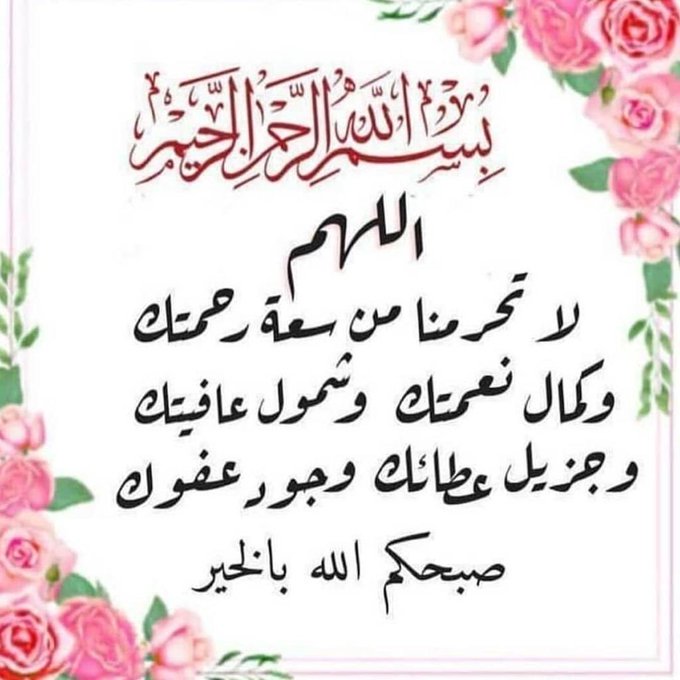 بسم الله الرحمن الرحيم
اللهم
لا تحرمنا من سعة رحمتك
وكمال نعمتك وشمول عافيتك
وجزيل عطائك وجود عفوك
صبحكم الله بالخير